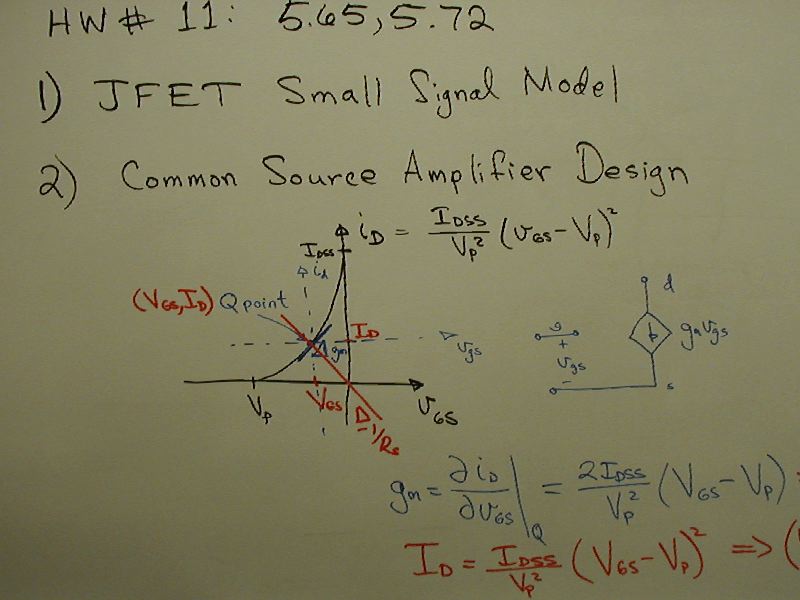 HW # 11: 5.65, 5.72
1) JFET Small Signal Model
2) Common Source Amplifier Design
i_D = I_DSS/V_P² (v_GS - V_P)²
I_DSS
i_d
(V_GS, I_D) Q point
I_D
g_m
v_gs
V_P
V_GS
-1/R_s
v_GS
d
g
+
v_gs
-
g_m v_gs
s
g_m = ∂i_D/∂v_GS |_Q = 2I_DSS/V_P² (V_GS - V_P)
I_D = I_DSS/V_P² (V_GS - V_P)² => (